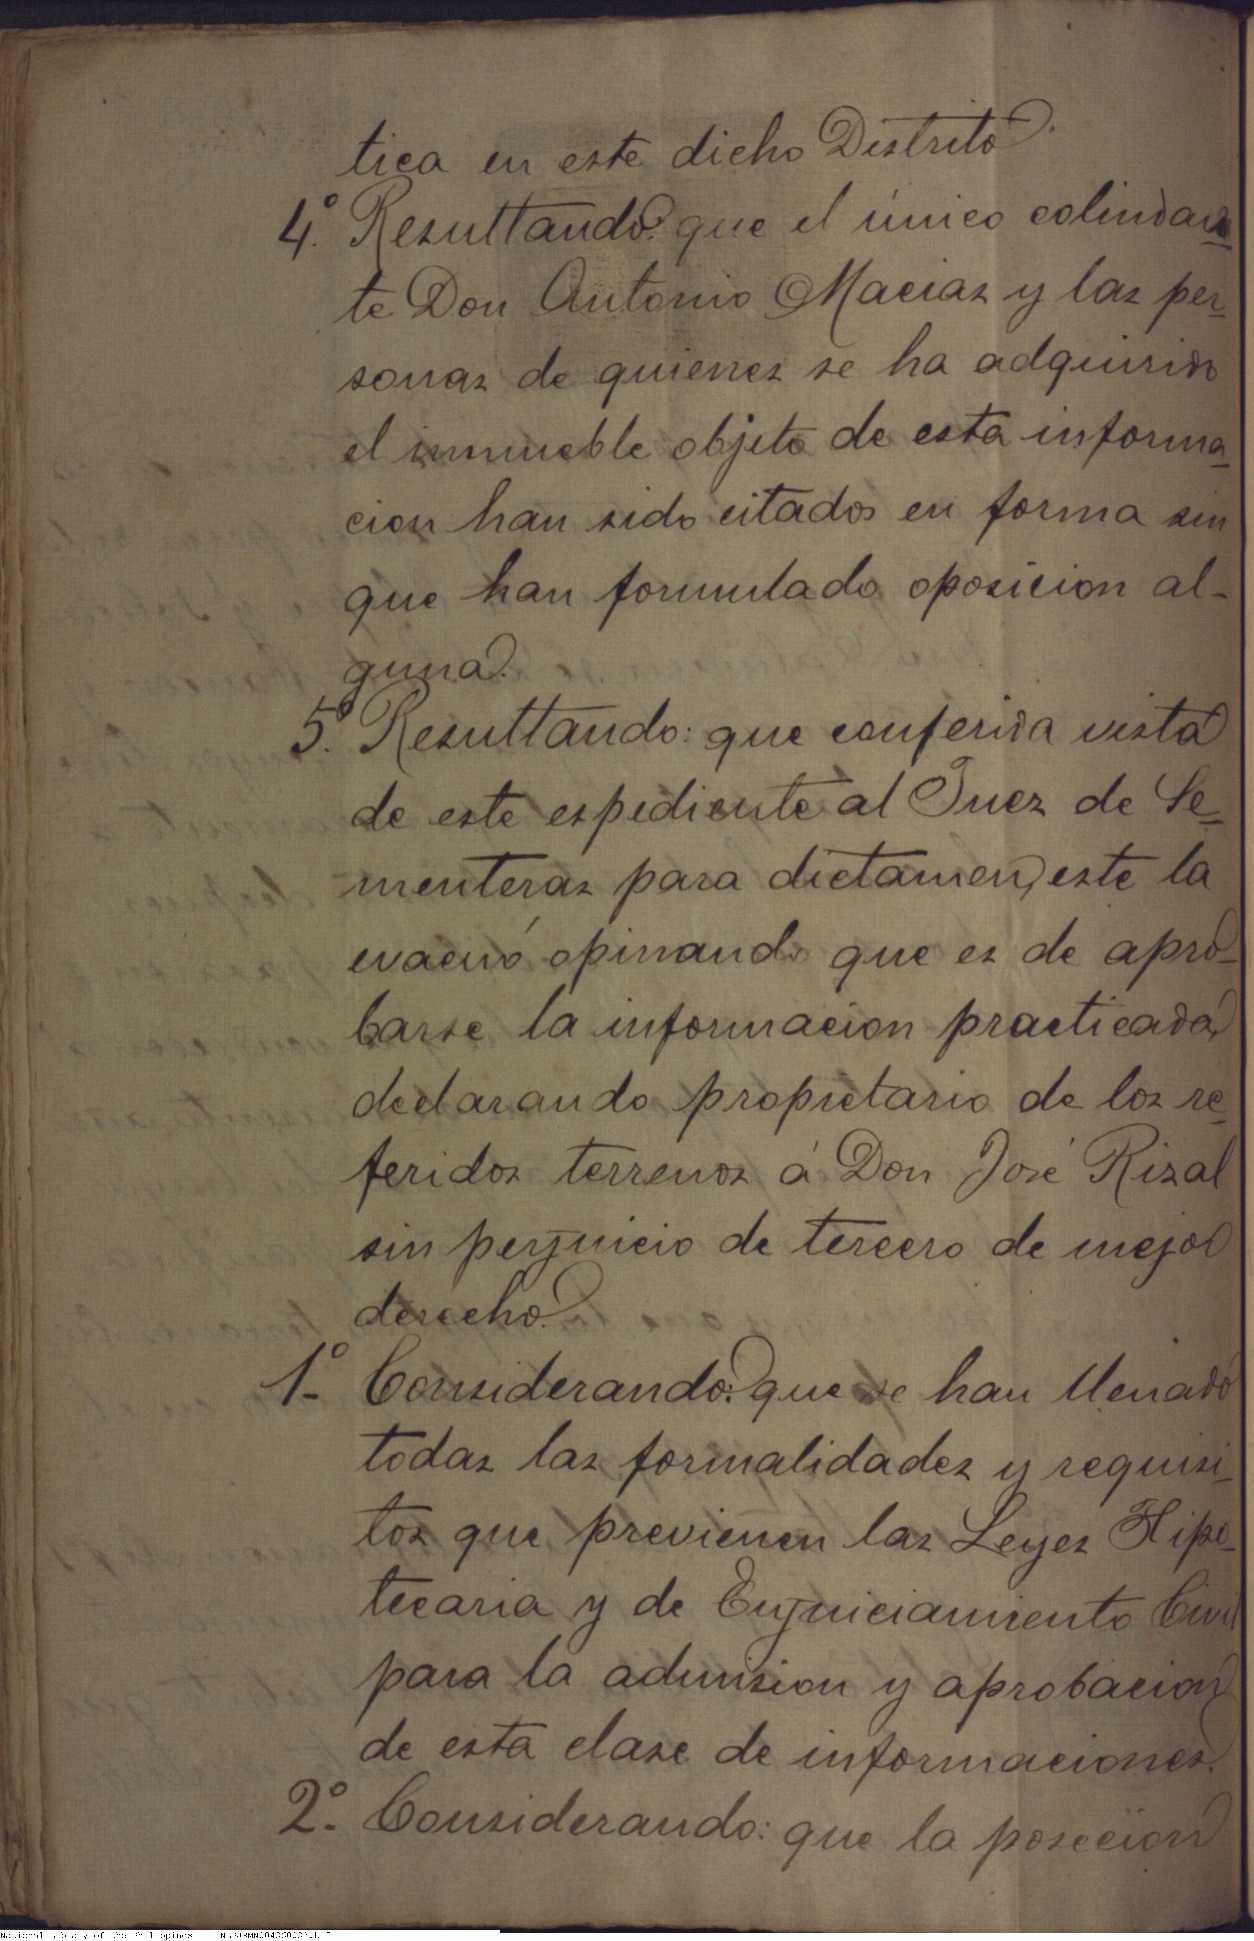 tica en este dicho Distrito.
4.º Resultando: que el único colindan-
te Don Antonio Macias y las per-
sonas de quienes se ha adquirido
el inmueble objeto de esta informa-
cion han sido citados en forma sin
que han formulado oposicion al-
guna.
5.º Resultando: que conferida vista
de este espediente al Juez de Se-
menteras para dictamen, este la
evacuó opinando que es de apro-
barse la informacion practicada,
declarando propietario de los re-
feridos terrenos á Don José Rizal
sin perjuicio de tercero de mejor
derecho.
1.º Considerando: que se han llenado
todas las formalidades y requisi-
tos que previenen las Leyes Hipo-
tecaria y de Enjuiciamiento Civil
para la admision y aprobacion
de esta clase de informaciones.
2.º Considerando: que la posecion
National Library of the Philippines